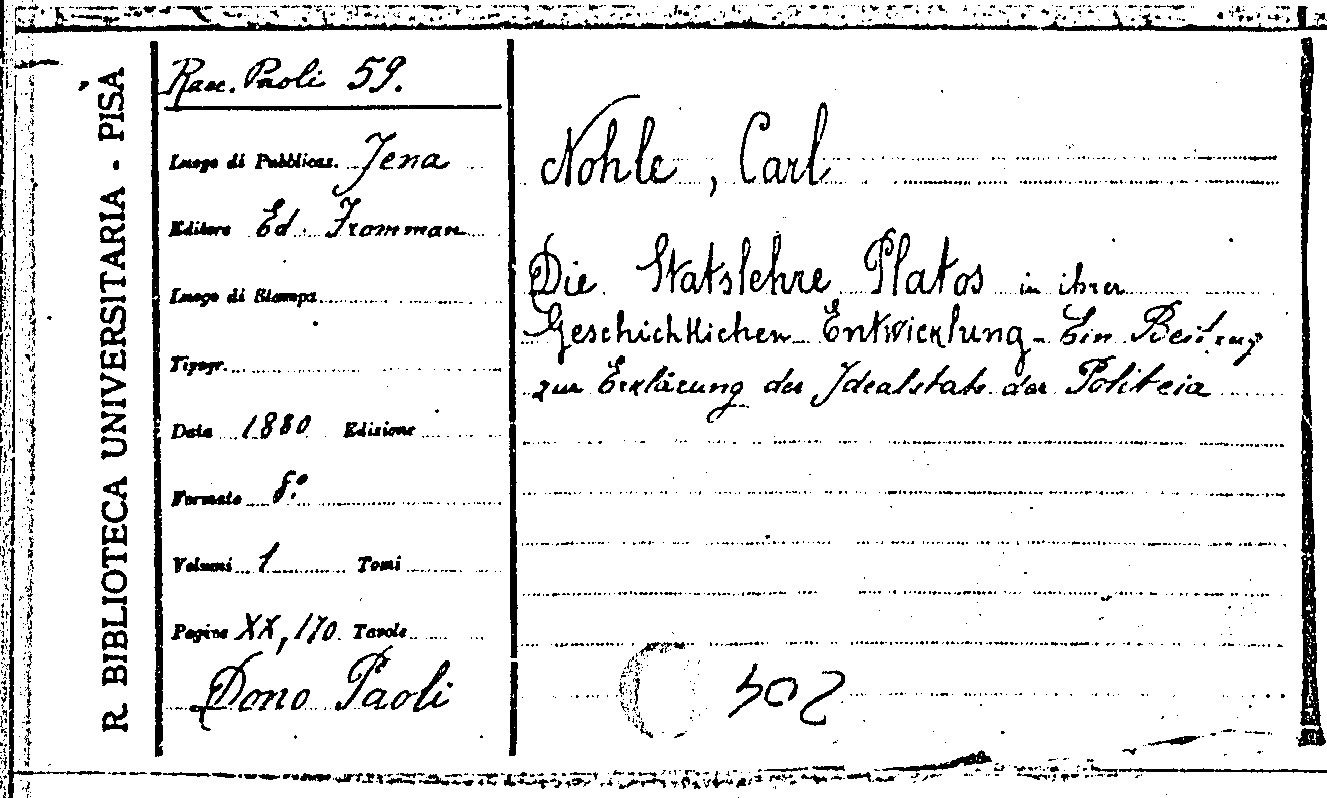 R BIBLIOTECA UNIVERSITARIA - PISA
Racc. Paoli 59.
Luogo di Pubblicaz. Jena
Editore Ed. Fromman
Luogo di Stampa
Tipogr.
Data 1880 Edizione
Formato 8°
Volumi 1 Tomi
Pagine XX, 170 Tavole
Dono Paoli
Nohle, Carl
Die Statslehre Platos in ihrer
Geschichtlichen Entwicklung - Ein Beitrag
zur Erklärung des Idealstats der Politeia